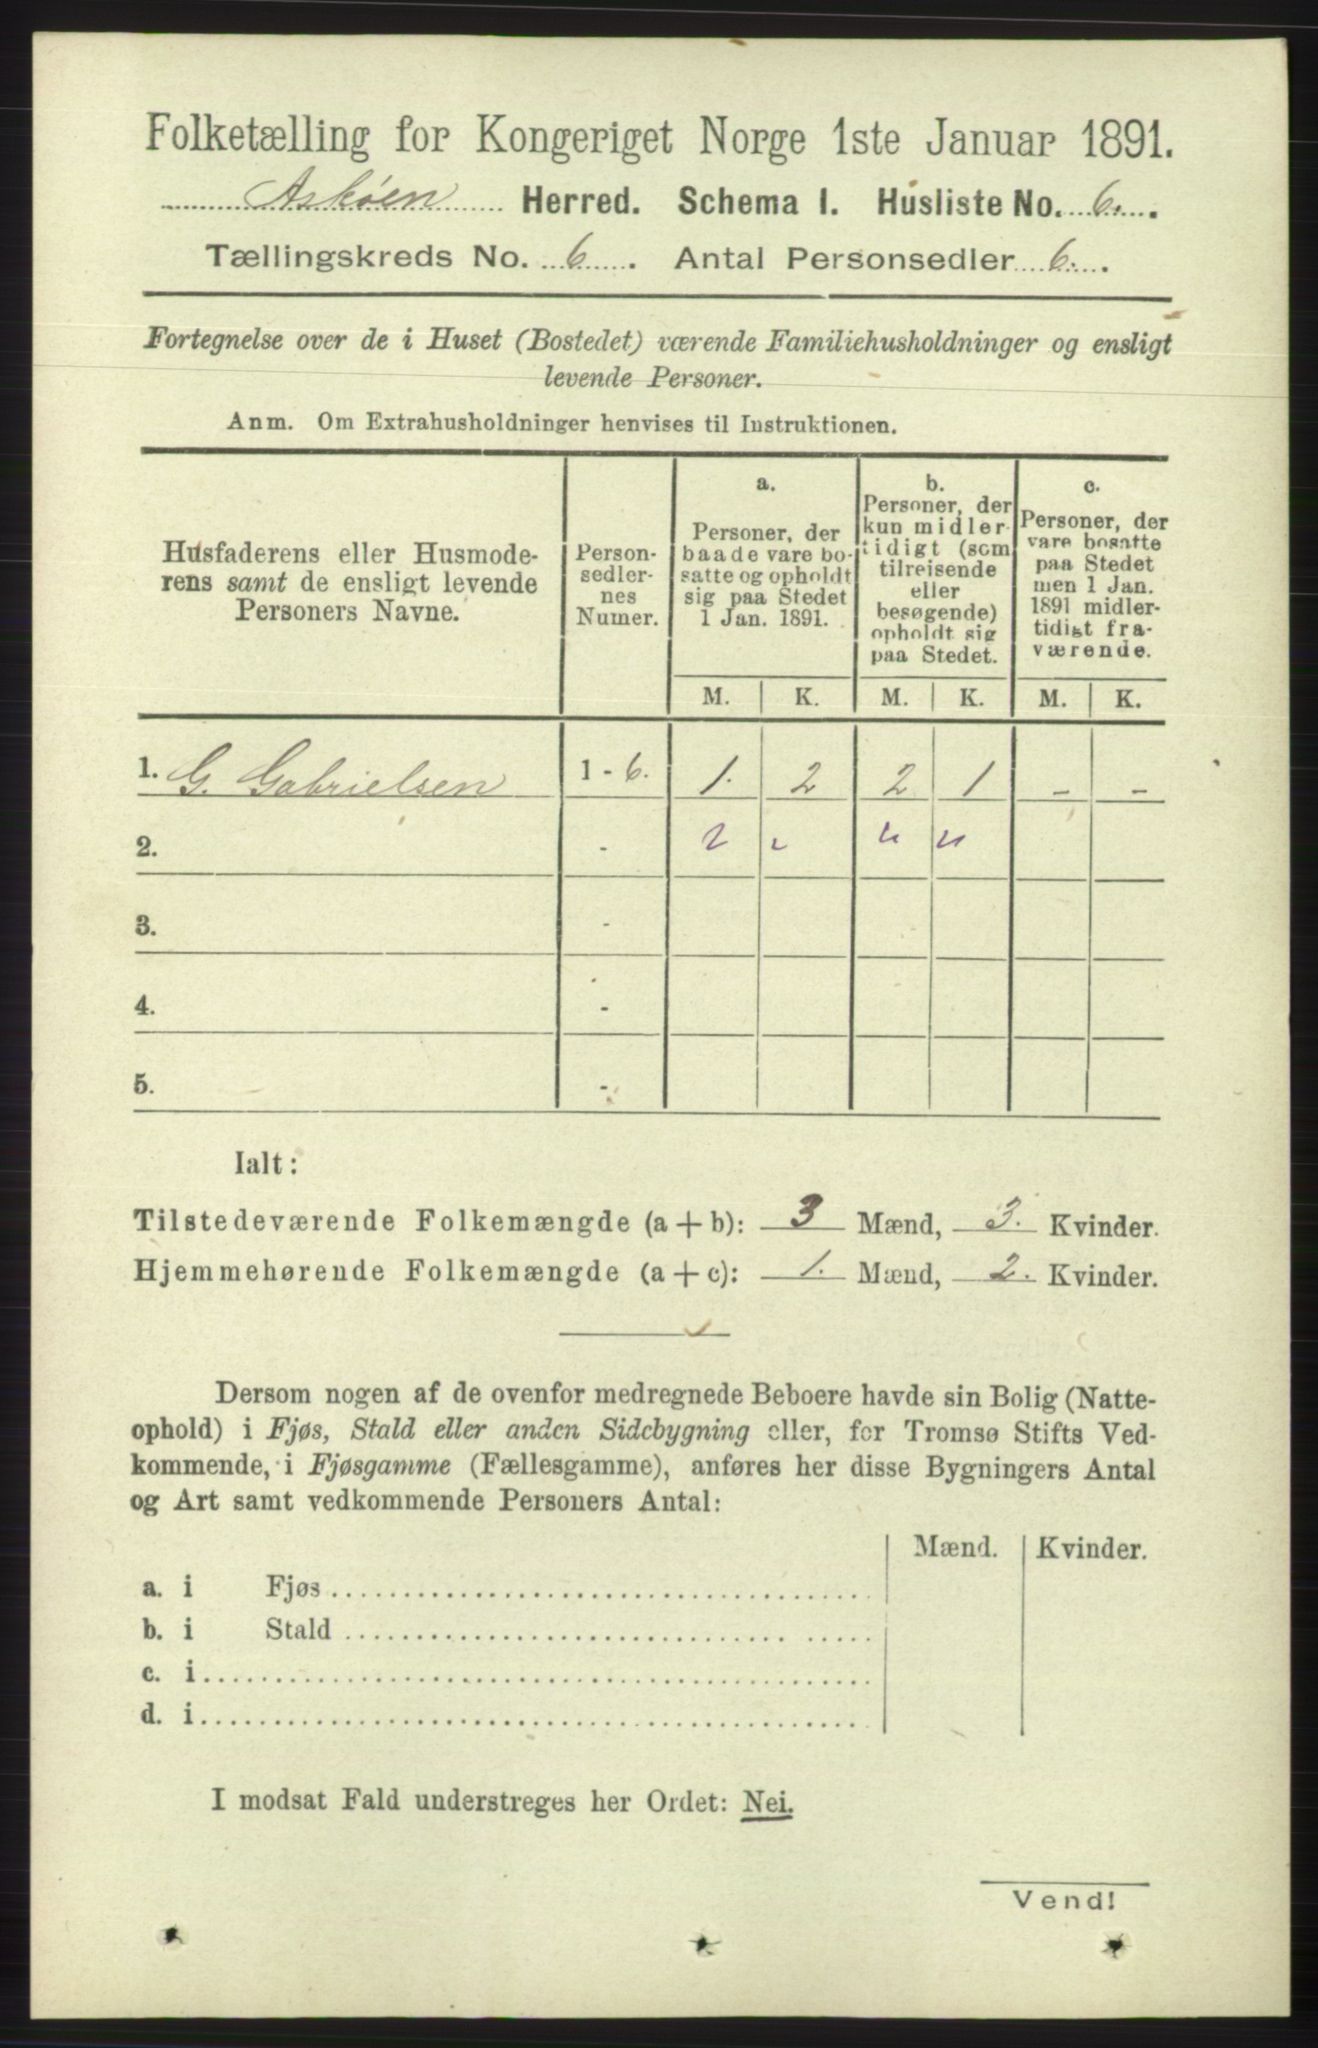 Folketælling for Kongeriget Norge 1ste Januar 1891.
Askøen Herred. Schema I. Husliste No. 6.
Tællingskreds No. 6. Antal Personsedler 6.
Fortegnelse over de i Huset (Bostedet) værende Familiehusholdninger og ensligt
levende Personer.
Anm. Om Extrahusholdninger henvises til Instruktionen.
Husfaderens eller Husmode-
rens samt de ensligt levende
Personers Navne.
Person-
sedler-
nes
Numer.
a.
Personer, der
baade vare bo-
satte og opholdt
sig paa Stedet
1 Jan. 1891.
b.
Personer, der
kun midler-
tidigt (som
tilreisende
eller
besøgende)
opholdt sig
paa Stedet.
c.
Personer, der
vare bosatte
paa Stedet
men 1 Jan.
1891 midler-
tidigt fra-
værende.
M. K. M. K. M. K.
1. G. Gabrielsen 1 - 6. 1. 2 2 1 - -
2. -
3. -
4. -
5. -
Ialt:
Tilstedeværende Folkemængde (a + b): 3 Mænd, 3. Kvinder.
Hjemmehørende Folkemængde (a + c): 1. Mænd, 2. Kvinder.
Dersom nogen af de ovenfor medregnede Beboere havde sin Bolig (Natte-
ophold) i Fjøs, Stald eller anden Sidebygning eller, for Tromsø Stifts Ved-
kommende, i Fjøsgamme (Fællesgamme), anføres her disse Bygningers Antal
og Art samt vedkommende Personers Antal:
Mænd. Kvinder.
a. i Fjøs
b. i Stald
c. i
d. i
I modsat Fald understreges her Ordet: Nei.
Vend!